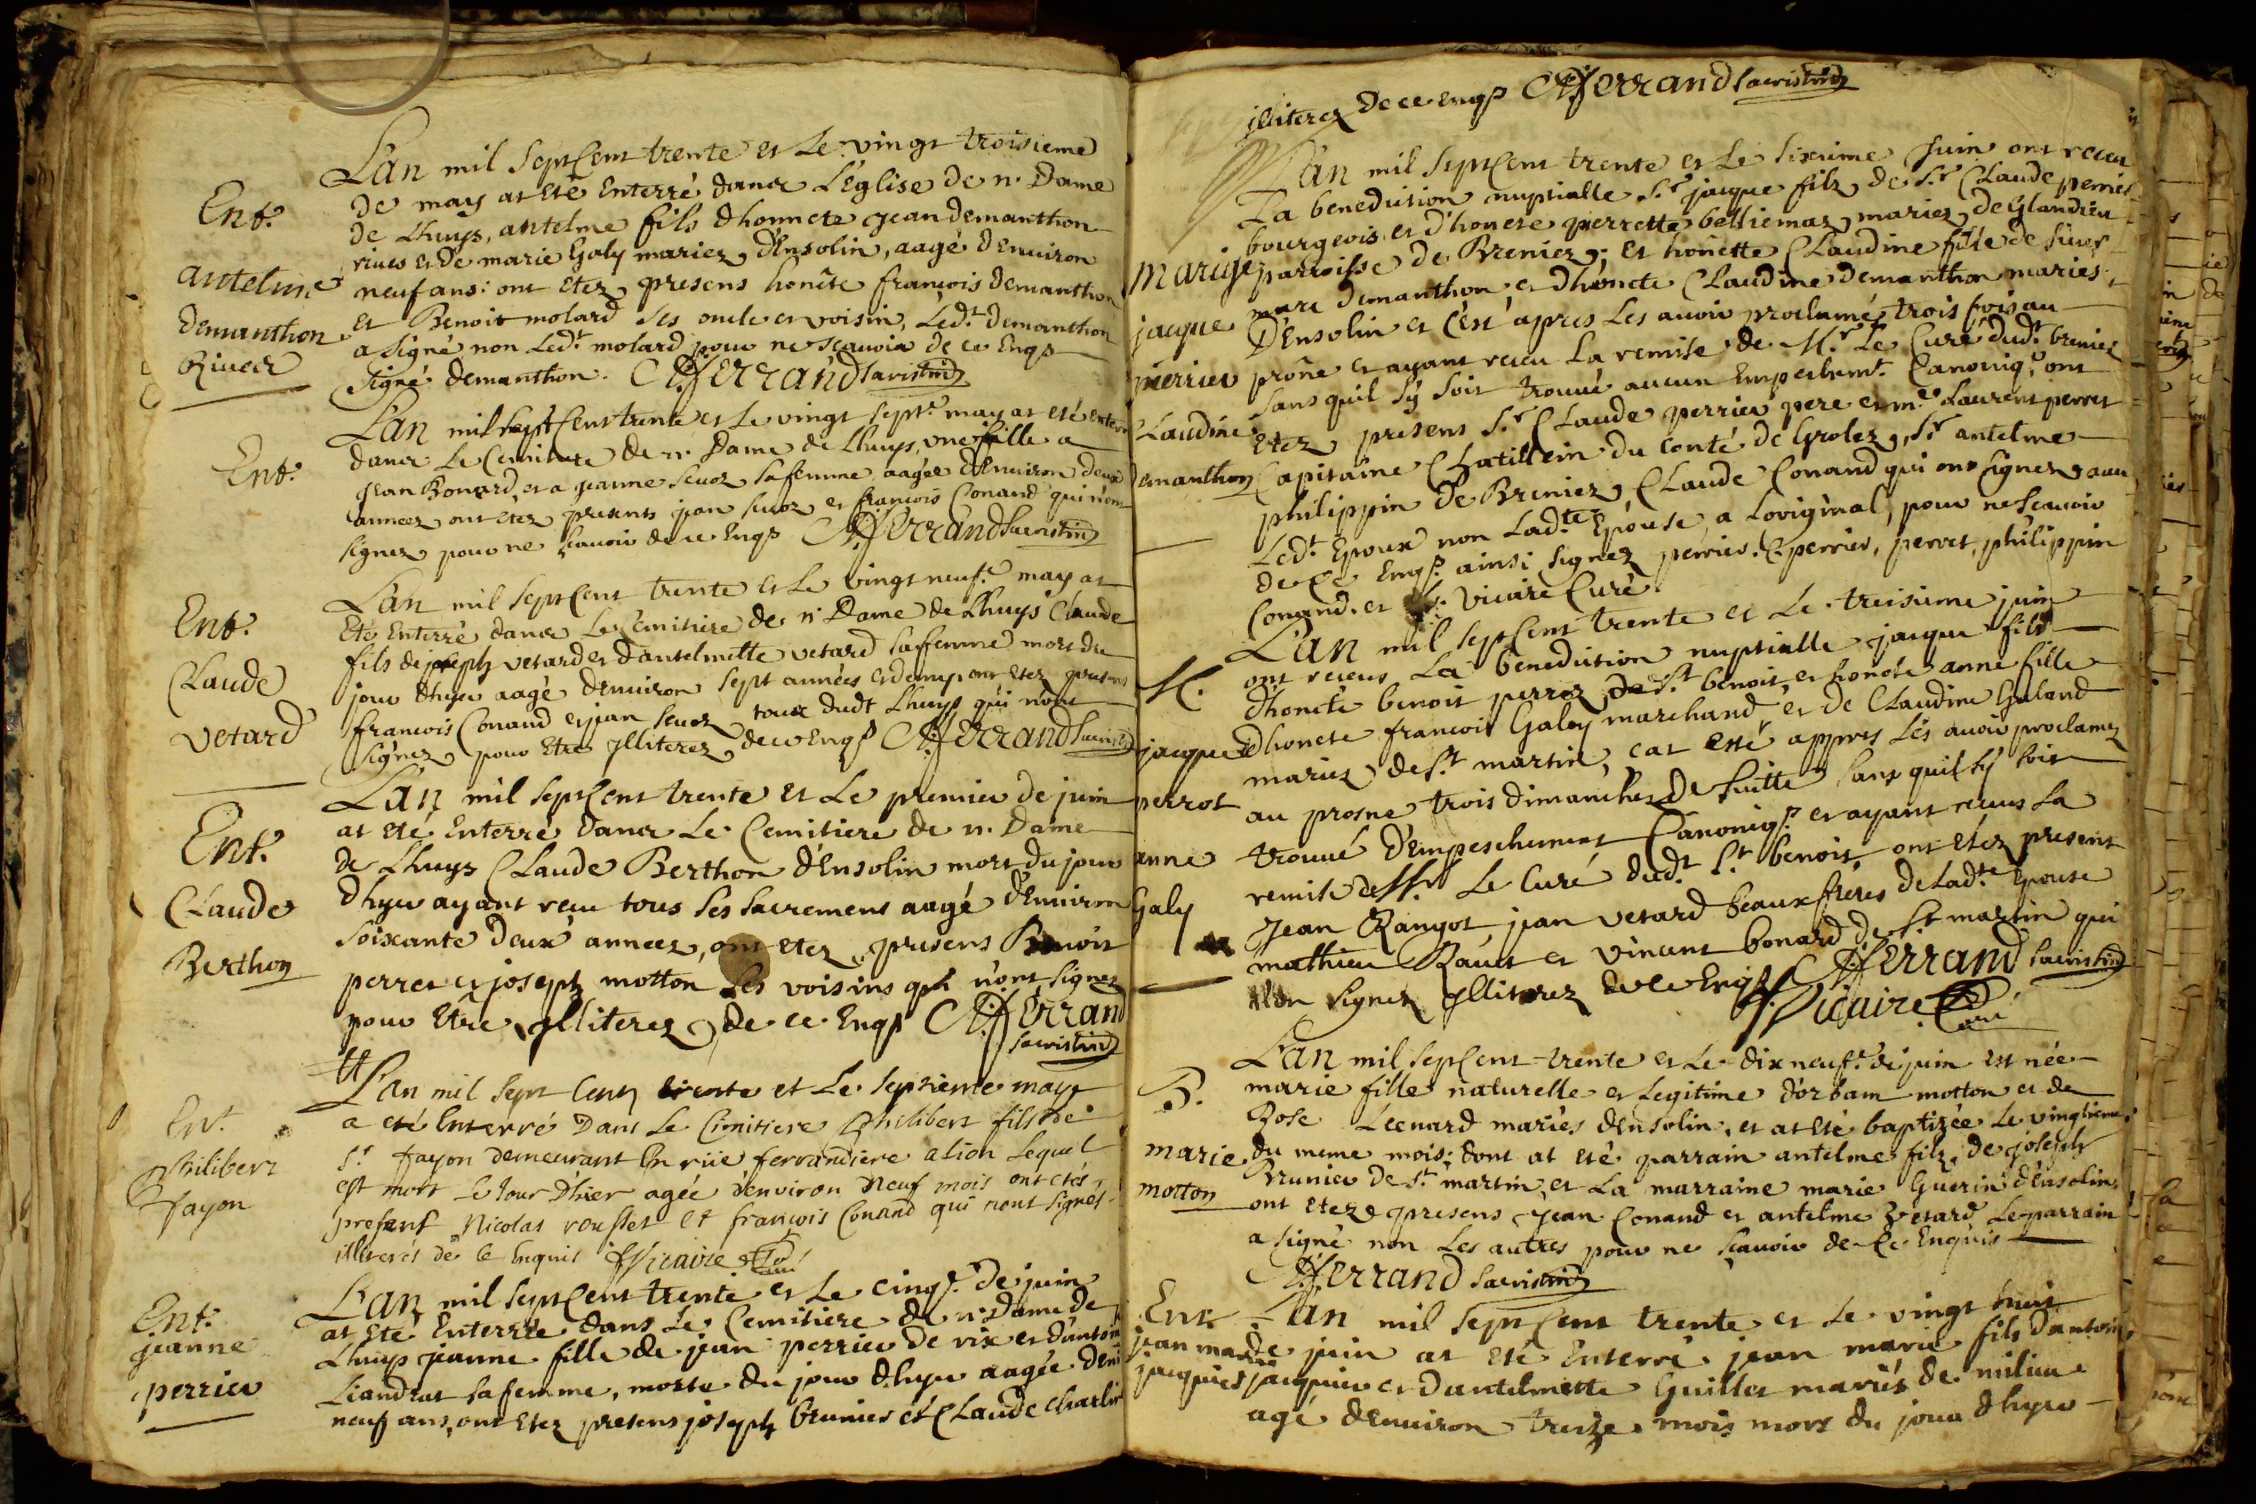 Lan mil sept Cent trente et Le vingt troisieme
de may at eté Enterré dans L'église de n. Dame
Ent.
de Lhuys, antelme fils dhonnete Jean demanthon
antelme
rives et de marie Galy mariez, d'Ensolin, aagé d'Enuiron
demanthon
neuf ans: ont etez presens honête françois demanthon
Rives
et Benoit molard ses oncle et voisin, Ledt. demanthon
a signé non Ledt. molard pour ne sçauoir de ce Enqs
signé demanthon. Ferrand sacristin
Lan mil sept Cent trente et Le vingt septe. may at eté enterré
Ent.
dans Le Cemitiere de n. Dame de Lhuys, une fille a
Jean Bonard, et a jeanne seuoz sa femme aagée d'Enuiron deux
années ont etez presents jean seuoz et françois Conand qui n'ont
signez pour ne sçauoir de ce Enqs Ferrand sacristin
Lan mil sept Cent trente et Le vingt neufe. may at
Ent.
Eté Enterré dans Le Cemitiere de n. Dame de Lhuys Claude
Claude
fils de joseph vetard et d'antelmette vetard sa femme mort du
vetard
jour dhyer aagé d'enuiron sept années et demy ont etez presens
françois Conand et jean seuoz tous dudt Lhuys qui n'ont
signez pour Etre illiterez de ce Enqs Ferrand sacristin
Lan mil sept Cent trente et Le premier de juin
Ent.
at eté Enterré dans Le Cemitiere de n. Dame
Claude
de Lhuys Claude Berthon d'Ensolin mort du jour
Berthon
dhyer ayant recu tous ses sacremens aagé d'Enuiron
soixante deux années, ont etez presens Benoit
perret et joseph motton ses voisins qui n'ont signez
pour Etre illiterez de ce Enqs Ferrand
sacristin
Lan mil sept Cent trente et Le septieme may
Ent.
a eté Enterré Dans Le Cimitiere philibert fils de
philibert
sr fayon demeurant En rüe ferrandiere a lion Lequel
fayon
est mort Le jour d'hier agée d'enuiron neuf mois ont etés
present Nicolas rousset et françois Conand qui n'ont signés
illiterés de ce Enquis Vicaire
Lan mil sept Cent trente et Le cinqe. de juin
Ent.
at eté Enterrée dans Le Cemitiere de n. Dame de
jeanne
Lhuys jeanne fille de jean perrier de rix et d'antoin
perrier
Liandrat sa femme, morte du jour dhyer aagée d'Enui
neuf ans, ont etez presens joseph brunier et Claude charlin
illiterez de ce enqs Ferrand sacristin
Lan mil sept Cent trente et Le sixieme Juin ont receu
La benediction nuptialle Sr. jacque filz de Sr. Claude perrier
bourgeois et d'honete pierrette belliemaz mariez, de Glandieu
Marige
parroisse de Breniez; et honette Claudine fille de sieur
jacque
marc demanthon et d'honete Claudine demanthon mariés
perrier
D'Ensolin et C'est apres Les auoir proclamé trois fois au
Claudine
prône et ayant receu La remise de Mr. Le Curé dudt. breniez
demanthon
sans quil s'y soit trouué aucun Empeschemt. Canoniqe. ont
Etez presens Sr. Claude perrier pere et me. Laurent perret
Capitaine Chatellein du Conté de Grolez, Sr. antelme
philippin de Breniez, Claude Conand qui ont signez auec
Ledt. Epoux non Ladte. Epouse a Loriginal, pour ne sçauoir
de Ce Enqs. ainsi signez perrier. C perrier, perret, philippin
Conand. et vicaire Curé.
Lan mil sept Cent trente et Le treisieme juin
M.
ont receus La benediction nuptialle jacque fils
d'honete benoit perrez de St. benoit et honête anne fille
jacque
d'honete francois Galy marchand et de Claudine Galand
perrot
mariez de St. martin, cat esté appres Les auoir proclamez
au prosne trois dimanches De Suitte sans quil s'y soit
anne
trouué d'Empeschement Canoniqe. et ayant receus La
Galy
remise de Mr. Le Curé dudt. St. benoit ont etez present
Jean Rangot, jean vetard beaux freres de Ladte. Epouse
mathieu Rauet et vincent bonard de St martin qui
n'on signez illiterez de ce Enqs Ferrand sacristin
Vicaire Curé
Lan mil sept Cent trente et Le dix neufe. de juin est née
B.
marie fille naturelle et Legitime d'orbain motton et de
Rose Leonard mariés d'Ensolin, et at eté baptizée Le vingtieme
marie
du meme mois: dont at eté parrain antelme filz de joseph
motton
Brunier de St. martin, et La marraine marie Guerin d'ensolin,
ont etez presens jean Conand et antelme vetard Le parrain
a signé non Les autres pour ne sçauoir de Ce Enquis
Ferrand sacristin
Ent.
Lan mil sept Cent trente et Le vingt huit
jean marie
de juin at eté Enterré jean marie fils d'antoin
jacquier
jacquier et d'antelmette Guillet mariés de milieu
agé d'Enuiron treize mois mors du jour dhyer